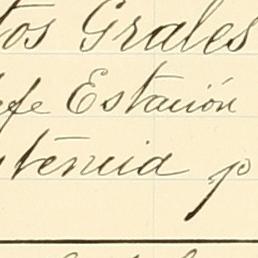 tos Grales
efe Estación
sténcia p